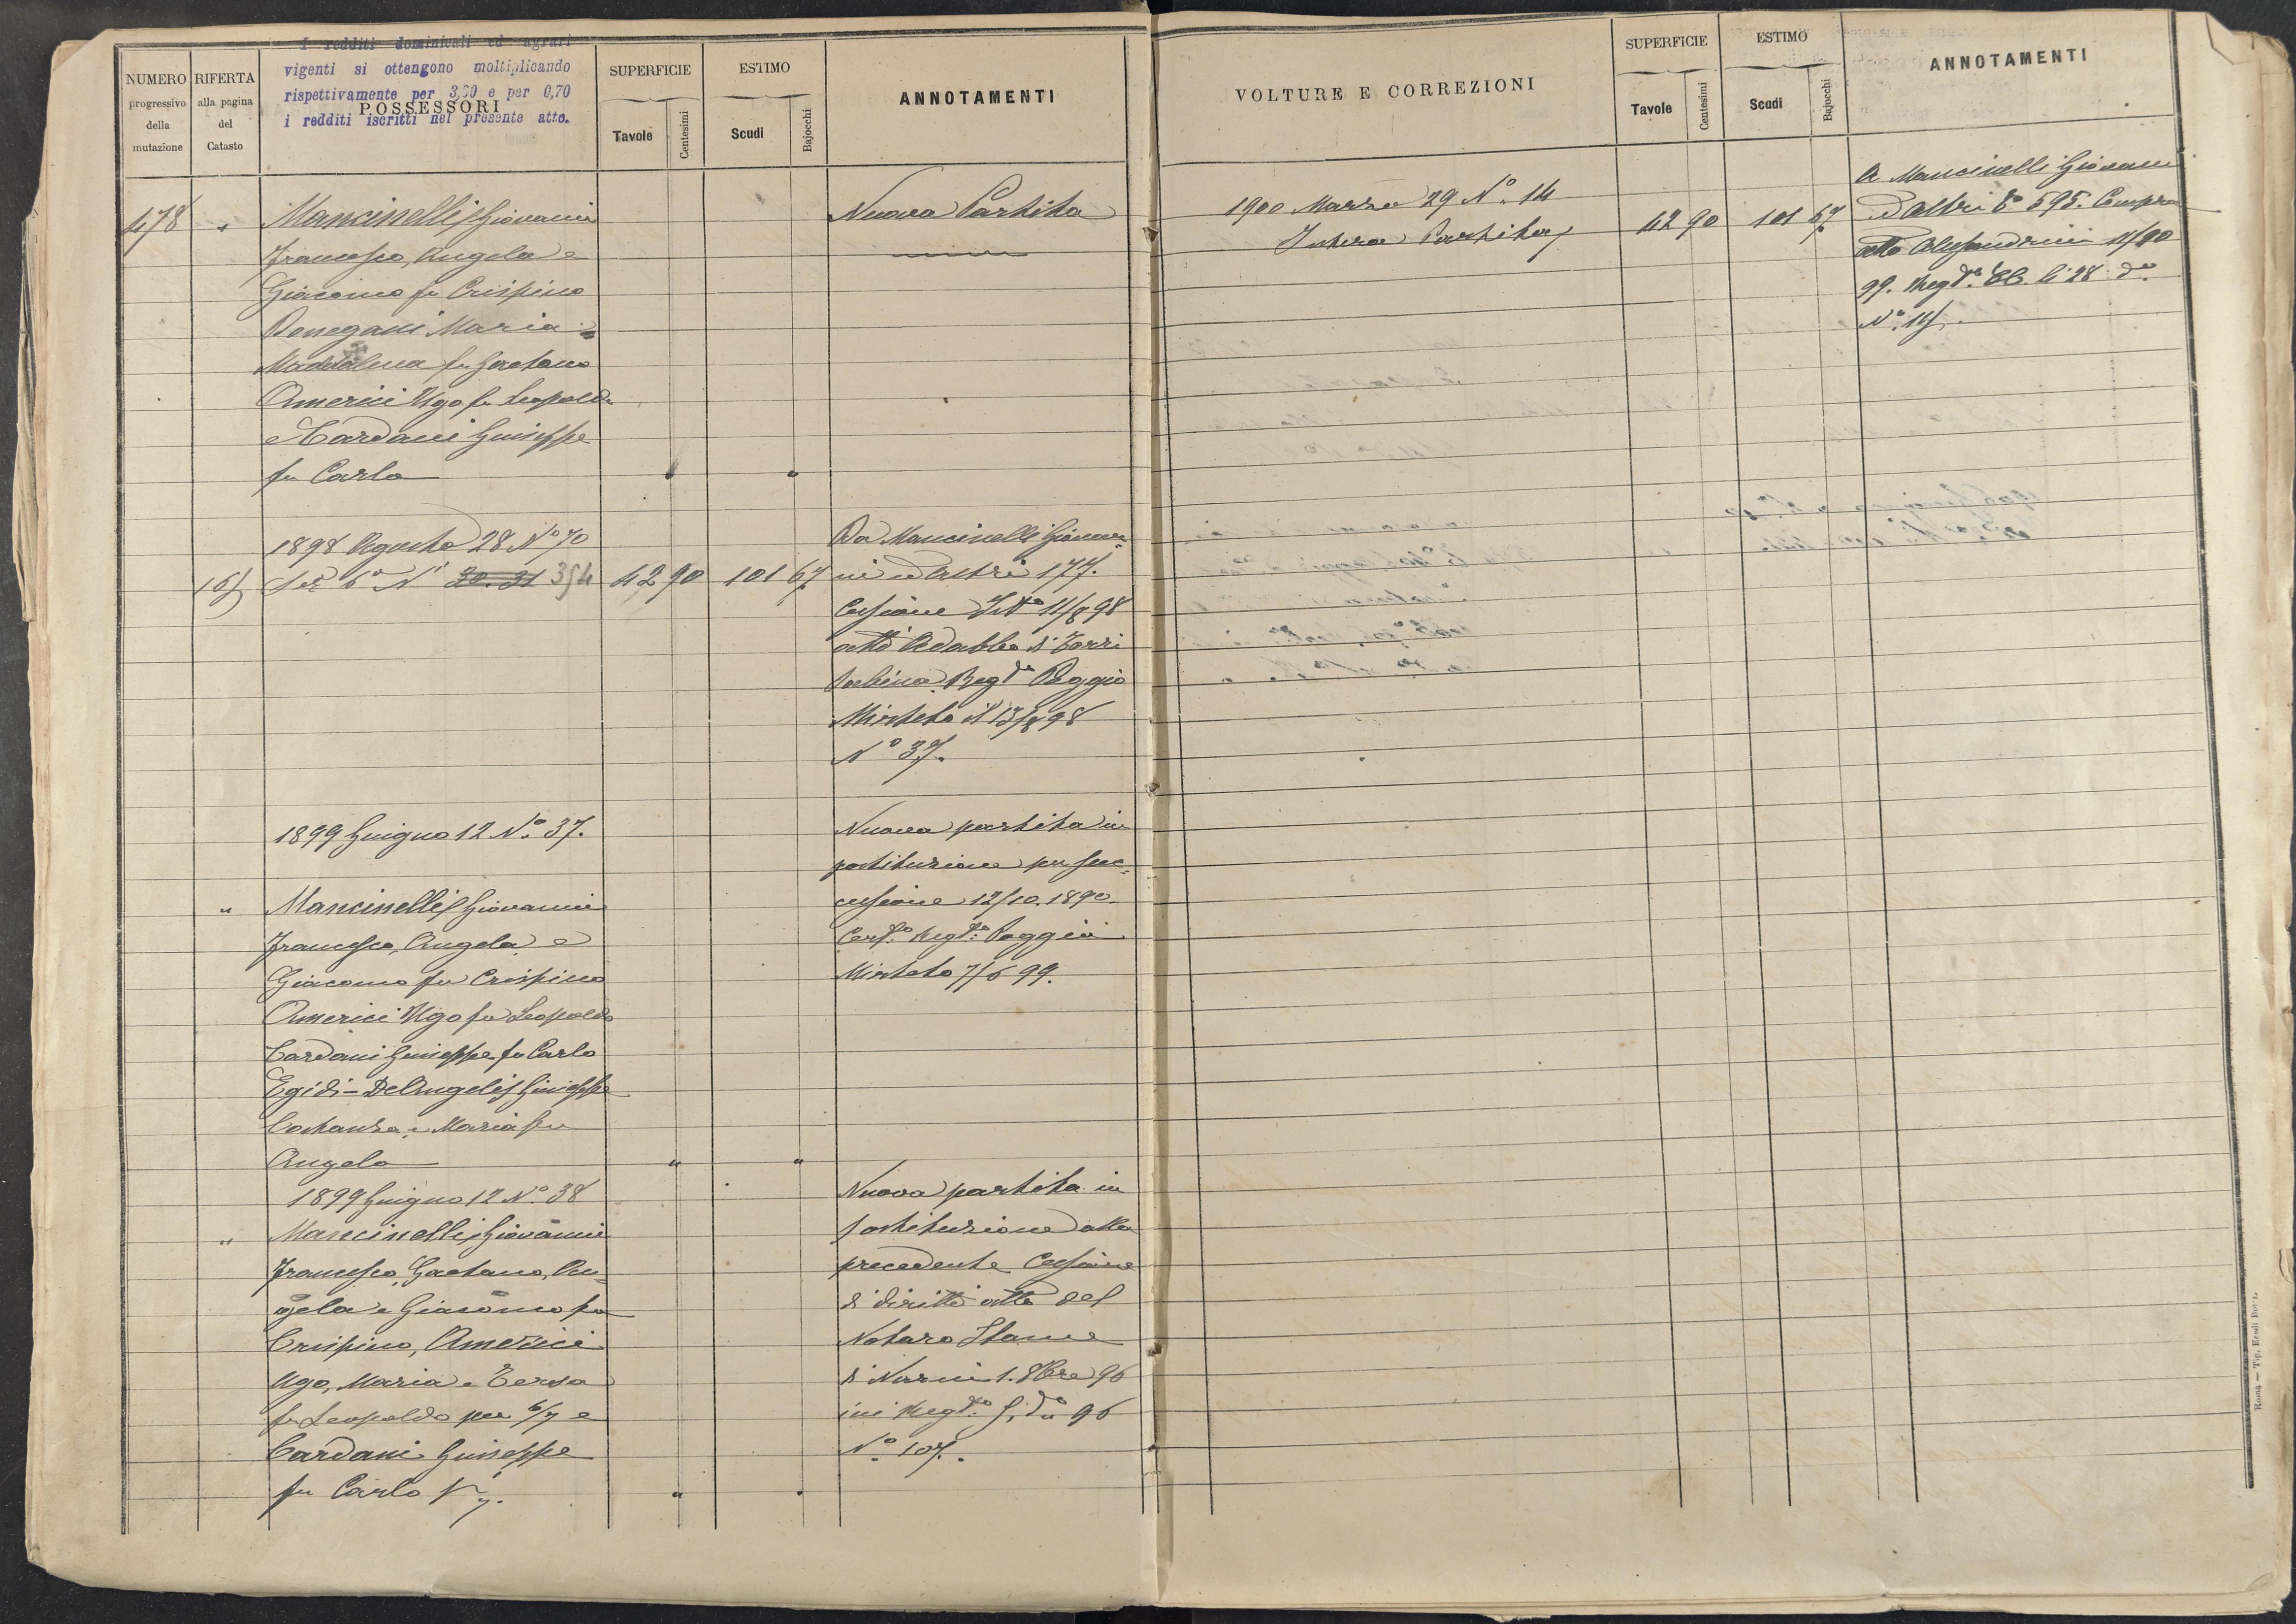 I redditi dominicali ed agrari
vigenti si ottengono moltiplicando
rispettivamente per 3,50 e per 0,70
i redditi iscritti nel presente atto.
NUMERO progressivo della mutazione
RIFERTA alla pagina del Catasto
POSSESSORI
SUPERFICIE
Tavole Centesimi
ESTIMO
Scudi Bajocchi
ANNOTAMENTI
478 " Mancinelli Giovanni
Francesco, Angela e
Giacomo fu Crispino
Benegani Maria
Maddalena fu Gaetano
Americi Ugo fu Leopoldo
e Cardani Giuseppe
fu Carlo
Nuova Partita
1898 Agosto 28 Nº 70
Sez 6ª Nº 30.31 354 42 90 101 67
Da Mancinelli Giovan
ni ed altri 177.
Cessione 11/8 98
atto Adabbo di Torri
Sabina Regto Poggio
Mirteto il 13/8 98
Nº 37.
1899 Giugno 12 Nº 37.
" Mancinelli Giovanni
Francesco, Angela e
Giacomo fu Crispino
Americi Ugo fu Leopoldo
Cardani Giuseppe fu Carlo
Egidi-DeAngelis Giuseppe
Costanza e Maria fu
Angelo
Nuova partita in
sostituzione per suc
cessione 12/10.1890.
Cert.º Regto Poggio
Mirteto 7/6 99.
1899 Giugno 12 Nº 38
" Mancinelli Giovanni
Francesco, Gaetano, An
gela e Giacomo fu
Crispino, Americi
Ugo, Maria e Tersa
fu Leopoldo per 6/7 e
Cardani Giuseppe
fu Carlo 1/7.
Nuova partita in
sostituzione alla
precedente Cessione
di diritti atto del
Notaro
di Narni 1. 8bre 96
ivi Regto 96
Nº 107.
VOLTURE E CORREZIONI
SUPERFICIE
Tavole Centesimi
ESTIMO
Scudi Bajocchi
ANNOTAMENTI
1900 Marzo 29 Nº 14
Intera Partita 42 90 101 67
A Mancinelli Giovanni
ed altri 595. Compra
atto Alessandrini
99. Regto li 28 do
Nº 114.